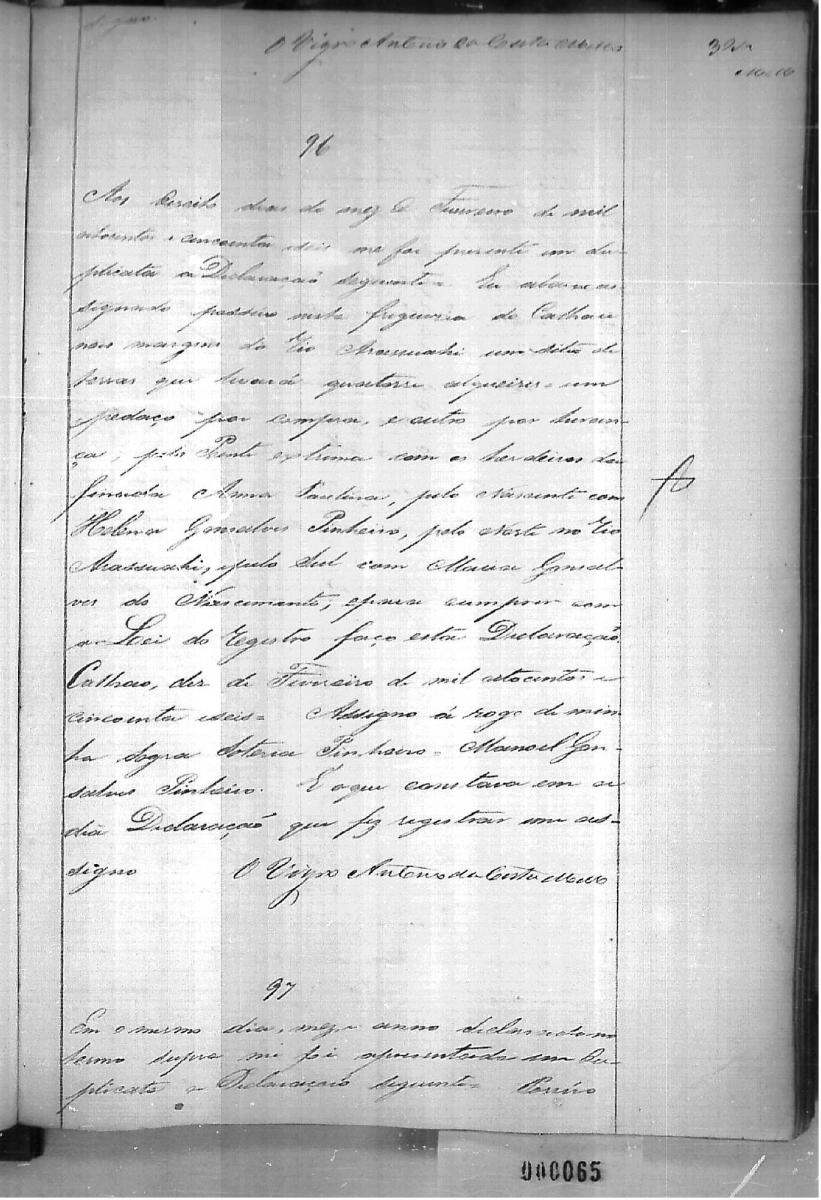 signo.
O Vigrº Antonio da Costa Mello
32
Mello
96
Aos desoito dias do mez de Fevereiro de mil
oitocentos e cincoenta e seis me foi presente em du-
plicata a Declaração seguinte = Eu abaixo as-
signado possuo nesta freguesia do Calhau
nas margens do Rio Arassuahi um sitio de
terras que levará quatorze alqueires = um
pedaço por compra, e outro por heran-
ça, pelo Poente extrema com os herdeiros da
finada Anna Paulina, pelo Nascente com
Helena Gonsalves Pinheiro, pelo Norte no Rio
Arassuahi, e pelo Sul com Maria Gonsal-
ves do Nascimento; e para cumprir com
a Lei do Registro faço esta Declaração.
Calhao, dez de Fevereiro de mil oitocentos e
cincoenta e seis = Assigno á rogo de min
ha sogra Pinheiro = Manoel Gon-
salves Pinheiro. E o que constava em a
dita Declaração que fiz registrar e me as-
signo O Vigrº Antonio da Costa Mello
97
Em o mesmo dia, mez e anno declarado no
termo supra me foi apresentada em du-
plicata a Declaração seguinte = Possuo
000065